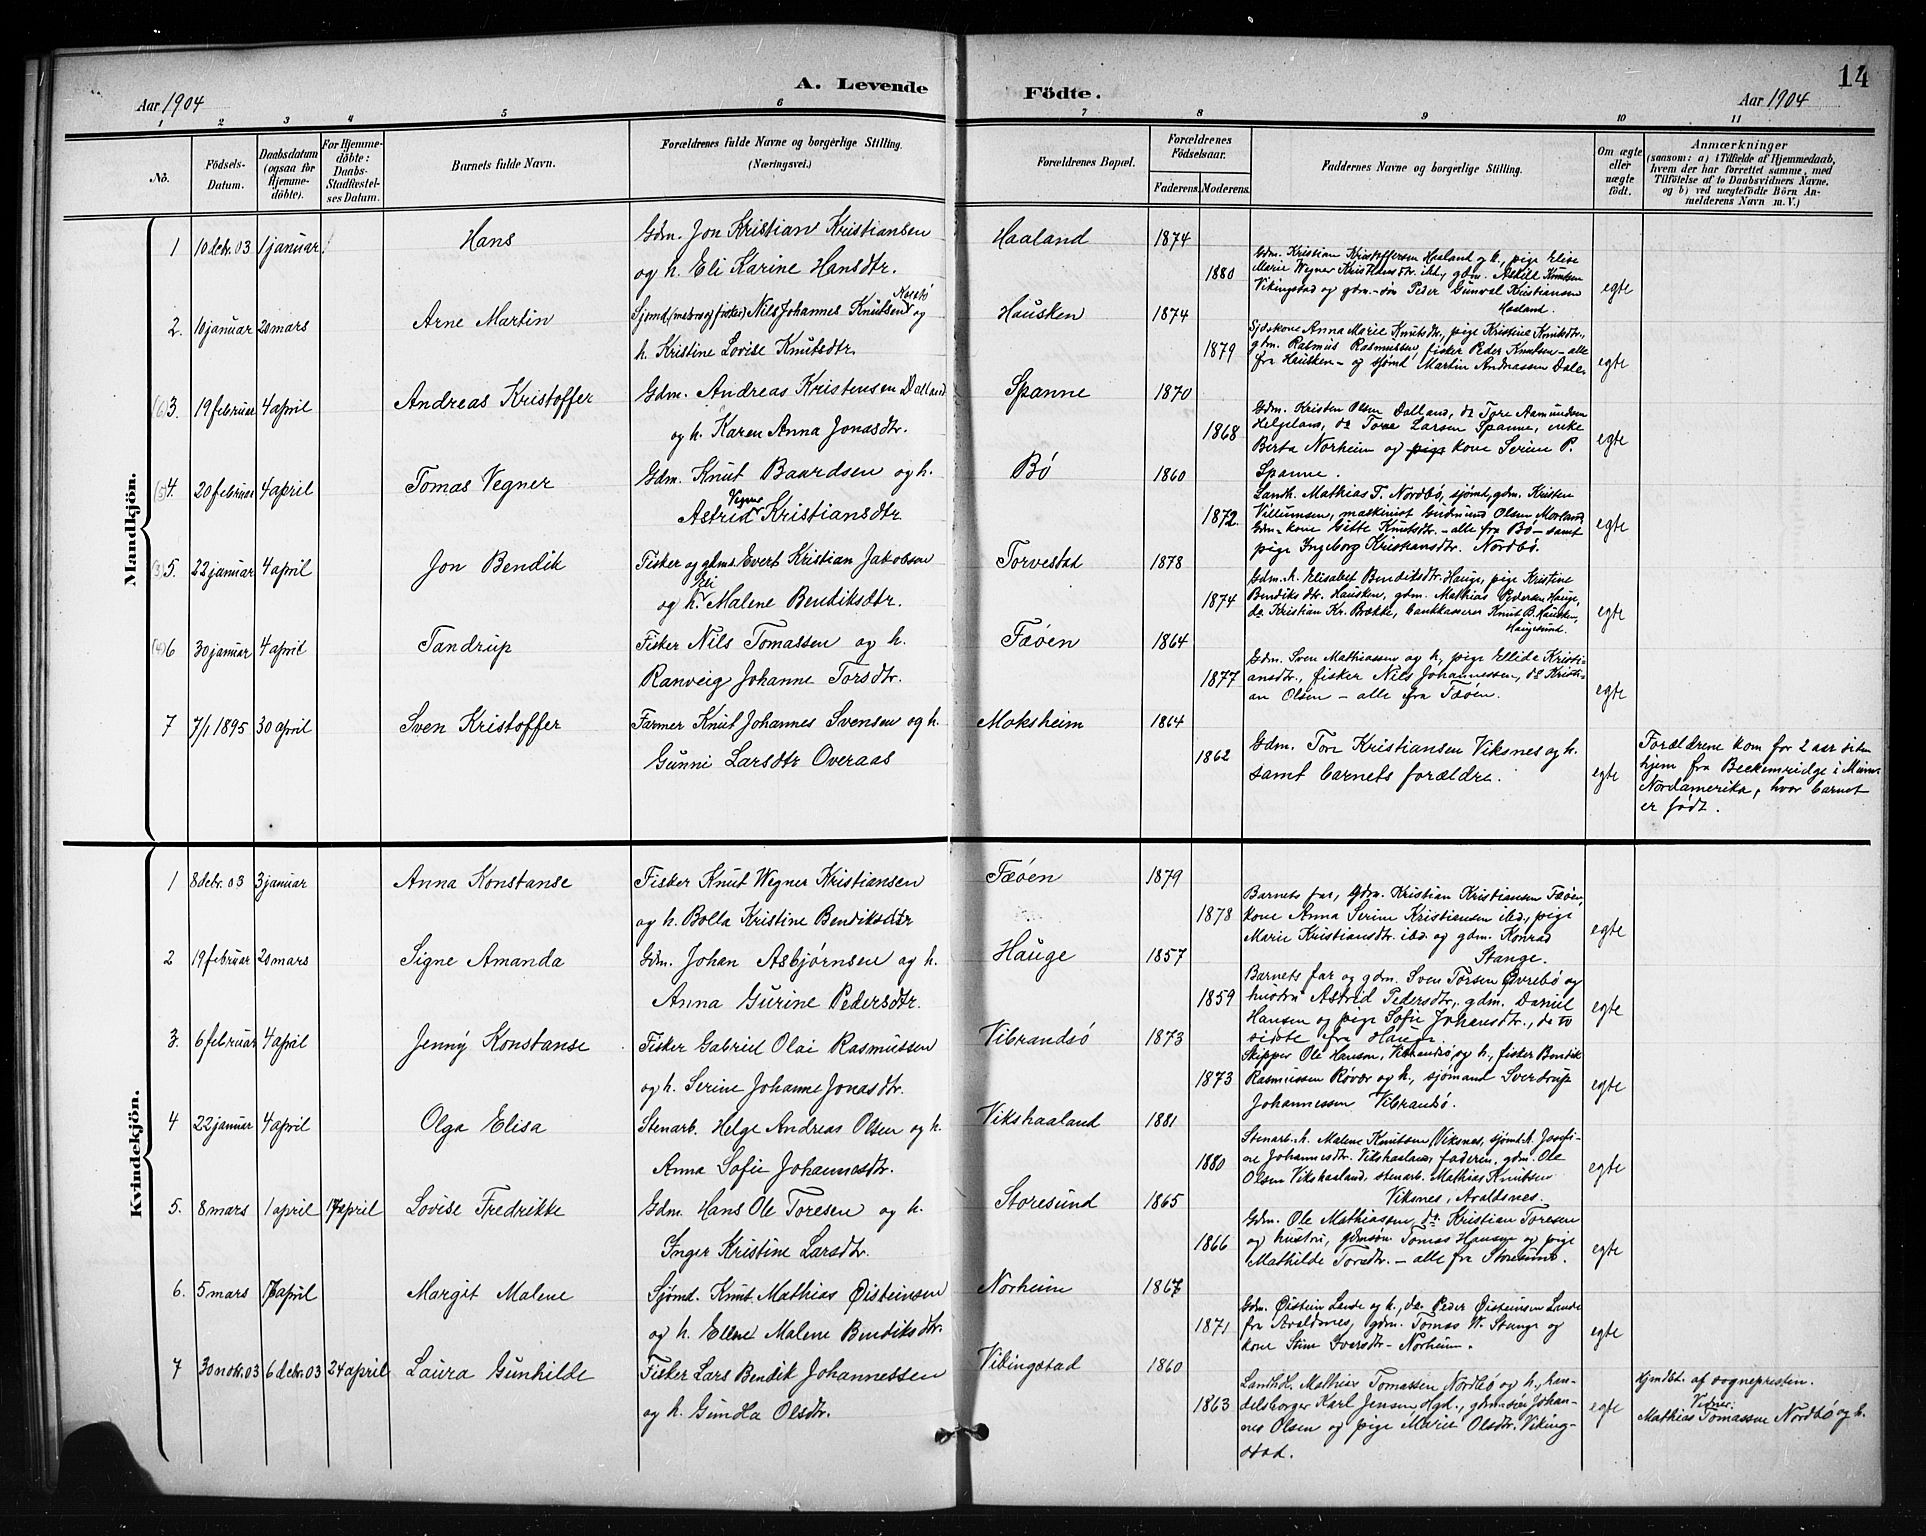 14
A. Levende Födte.
Aar 1904
Aar 1904
1 2 3 4 5 6 7 8 9 10 11
No.
Födsels-Datum.
Daabsdatum (ogsaa for Hjemmedöbte).
For Hjemmedöbte: Daabs-Stadfæstelses Datum.
Barnets fulde Navn.
Forældrenes fulde Navne og borgerlige Stilling. (Næringsvei.)
Forældrenes Bopæl.
Forældrenes Födselsaar.
Faderens. Moderens.
Faddernes Navne og borgerlige Stilling.
Om ægte eller uægte födt.
Anmærkninger
(saasom: a) i Tilfælde af Hjemmedaab, hvem der har forrettet samme, med Tilföielse af to Daabsvidners Navne, og b) ved uægtefödte Börn Anmelderens Navn m. V.)
Mandkjön.
1 10 debr. 03 1 januar Hans
Gdm. Jon Kristian Kristiansen
og h. Eli Karine Hansdtr.
Haaland 1874
1880
Gdm. Kristian Kristoffersen Haaland og h., pige Elise
Marie Vegner Kristiansdtr. ibd., gdm. Askild Knutsen
Vikingstad og gdm.-søn Peder Gunval Kristiansen
Haaland.
egte
2. 10 januar 20 mars Arne Martin
Sjømd. (matros og fisker) Nils Johannes Knutsen og
h. Kristine Lovise Knutsdtr.
Hausken 1874
1879
Sjdskone Anna Marie Knutsdtr., pige Kristine Knutsdtr.,
gdm. Rasmus Rasmussen, fisker Peder Knutsen – alle
fra Hausken – og sjømd. Martin Andreassen Dale.
egte
(6) 3. 19 februar 4 april Andreas Kristoffer
Gdm. Andreas Kristensen Dalland
og h. Karen Anna Jonasdtr.
Spanne 1870
1868
Gdm. Kristen Olsen Dalland, do Tore Aamundsen
Helgeland, do Tore Larsen Spanne, enke
Berta Norheim og pige kone Serine P.
Spanne.
egte
(5) 4. 20 februar 4 april Tomas Vegner
Gdm. Knut Baardsen og h.
Astrid Vegner Kristiansdtr
Bö 1860
1872.
Landh. Mathias T. Nordbø, sjømt, gdm. Kristen
Villumsen, maskinist Gudmund Olsen Morland
Gdm-kone Gitte Knutsdtr. – alle fra Bø – samt
pige Ingeborg Kristiansdtr. Nordbø.
egte
(3) 5. 22 januar 4 april Jon Bendik
Fisker og gdms. Evert Kristian Jakobsen
og h. Eli Malene Bendiksdtr.
Torvestad 1878
1874
Gdm. h. Elisabet Bendiksdtr. Hauge, pige Kristine
Bendiksdtr. Hausken, gdm. Mathias Pedersen Hauge,
do Kristian Kr. Bække, bankkasserer Knut B. Hausken,
Haugesund.
egte
(4) 6 30 januar 4 april Tandrup
Fisker Nils Tomassen og h.
Ranveig Johanne Torsdtr.
Fæøen 1864
1877
Gdm. Sven Mathiassen og h., pige Ellida Kristi-
ansdtr., fisker Nils Johannessen, do Kristi-
an Olsen – alle fra Fæøen.
egte
7 7/1 1895 30 april Sven Kristoffer
Farmer Knut Johannes Svensen og h.
Gunni Larsdtr Overaas
Moksheim 1864
1862
Gdm. Tore Kristiansen Viksnes og h.
samt barnets forældre.
egte
Forældrene kom for 2 aar siden
hjem fra Beckenridge i Minn.
Nordamerika, hvor barnet
er født.
Kvindekjön.
1 8 debr. 03 3 januar Anna Konstanse
Fisker Knut Wegner Kristiansen
og h. Bolla Kristine Bendiksdtr
Fæøen 1879
1878
Barnets far, Gdm. Kristian Kristiansen Fæøen,
kone Anna Serine Kristiansen ibd., pige
Marie Kristiansdtr. ibd. og gdm. Konrad
Stange.
egte
2 19 februar 20 mars Signe Amanda
Gdm. Johan Asbjørnsen og h.
Anna Gurine Pedersdtr.
Hauge 1857
1859
Barnets far og gdm. Sven Torsen Øvrebø og
hustru Astrid Pedersdtr., gdm. Daniel
Hansen og pige Sofie Johansdtr., de to
sidste fra Hauge.
egte
3. 6 februar 4 april Jenny Konstanse
Fisker Gabriel Olai Rasmussen
og h. Serine Johanne Jonasdtr.
Vibrandsö 1873
1873
Skipper Ole Hansen, Vibrandsø, og h., fisker Bendik
Rasmussen Røvær og h., sjømand Sverdrup
Johannessen Vibrandsø.
egte
4 22 januar 4 april Olga Elisa
Stenarb. Helge Andreas Olsen og h.
Anna Sofie Johannesdtr.
Vikshaaland 1881
1880
Stenarb. h. Malene Knutsen Viksnes, sjømt. h. Josefi-
ne Johannesdtr. Vikshaaland, faderen, gdm. Ole
Olsen Vikshaaland, stenarb. Mathias Knutsen
Viksnes, Avaldsnes.
egte
5. 8 mars 1 april 17 april Lovise Fredrikke
Gdm. Hans Ole Toresen og h.
Inger Kristine Larsdtr.
Storesund 1865
1866
Gdm. Ole Mathiassen, do. Kristian Toresen
og hustru, gdmsøn Tomas Hansen og pige
Mathilde Toresdtr. – alle fra Storesund.
egte
6. 5 mars 17 april Margit Malene
Sjømd. Knut Mathias Øisteinsen
og h. Ellene Malene Bendiksdtr.
Norheim 1867
1871
Gdm. Øistein Lande og h., do. Peder Øisteinsen Lande
fra Avaldsnes, gdm. Tomas W. Stange og
kone Stine Iversdtr – Norheim.
egte
7 30 nov. 03 6 debr. 03 24 april Laura Gunhilde
Fisker Lars Bendik Johannessen
og h. Gunda Olsdtr.
Vikingstad 1860
1863
Landh. Mathias Tomassen Nordbø og h., han-
delsborger Karl Jensen Hgd., gdm.søn Johan-
nes Olsen og pige Marie Olsdtr. Viking-
stad.
egte
Hjmdbt. af sognepresten.
Vidner:
Mathias Tomassen Nordbø og h.